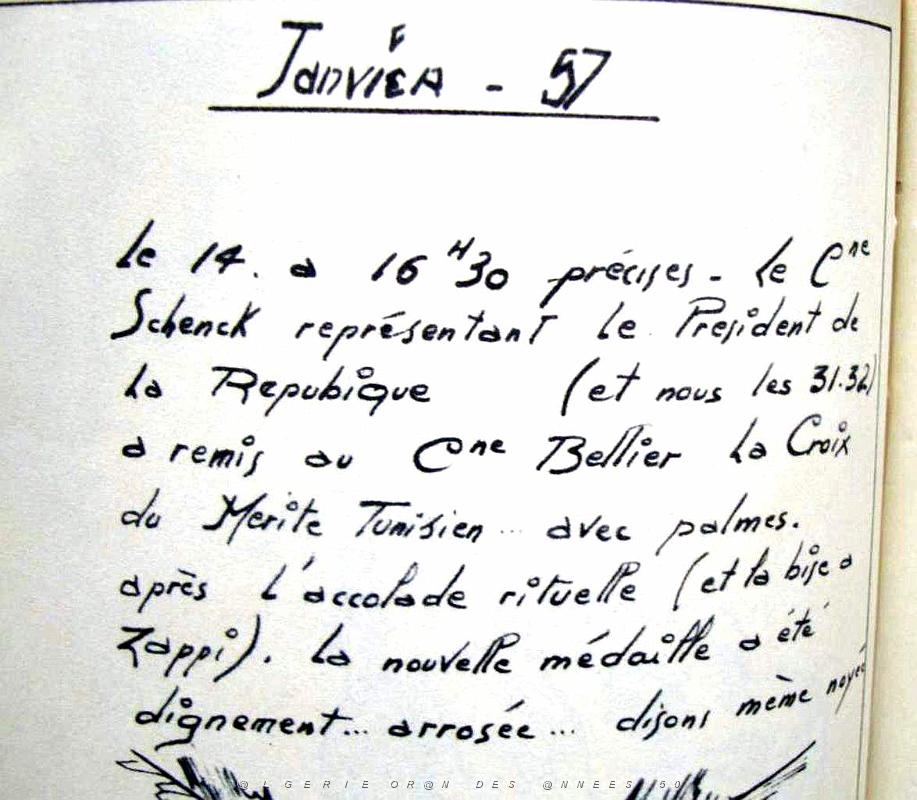 Janvier - 57
Le 14. a 16 H 30 précises - Le Cne
Schenck représentant Le President de
La Repubique (et nous les 31.32)
a remis au Cne Bellier La Croix
du Merite Tunisien ... avec palmes.
après L'accolade rituelle (et la bise a
Zappi). La nouvelle médaille a été
dignement... arrosée... disons même noyée
@LGERIE OR@N DES @NNEES 50